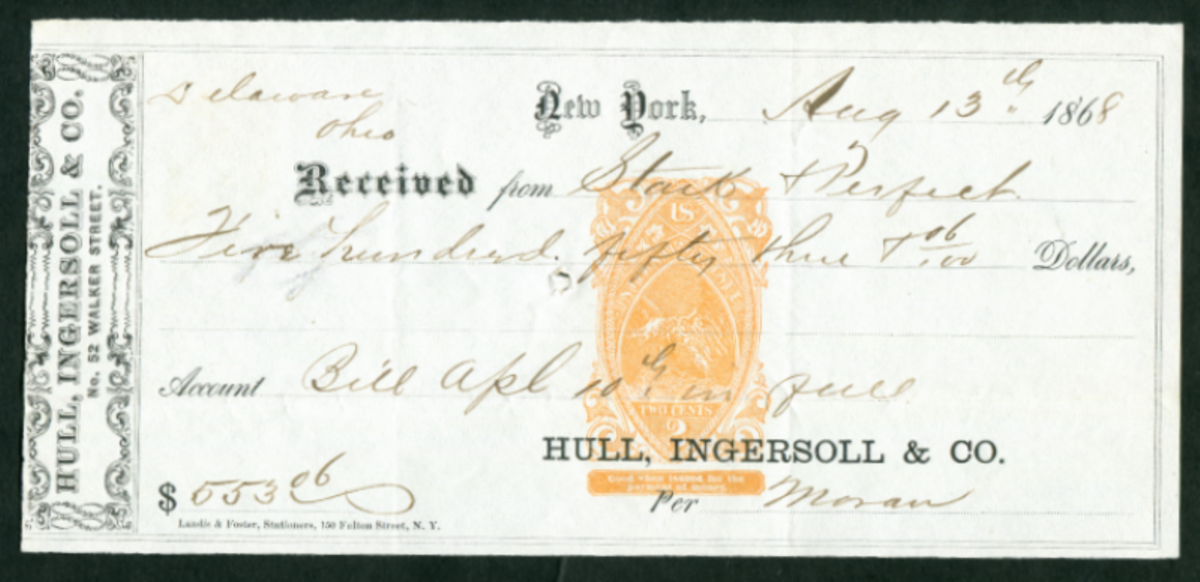 HULL, INGERSOLL & CO.
No. 52 WALKER STREET.
Delaware
Ohio
New York, Aug 13th 1868
Received from Stark & Perfect
Five hundred fifty three & 06/100 Dollars,
Account Bill Apl 10th in full
HULL, INGERSOLL & CO.
$ 553 06
Per Moran
Landis & Foster, Stationers, 150 Fulton Street, N. Y.
US
TWO CENTS
2
Good when issued for the
payment of money.